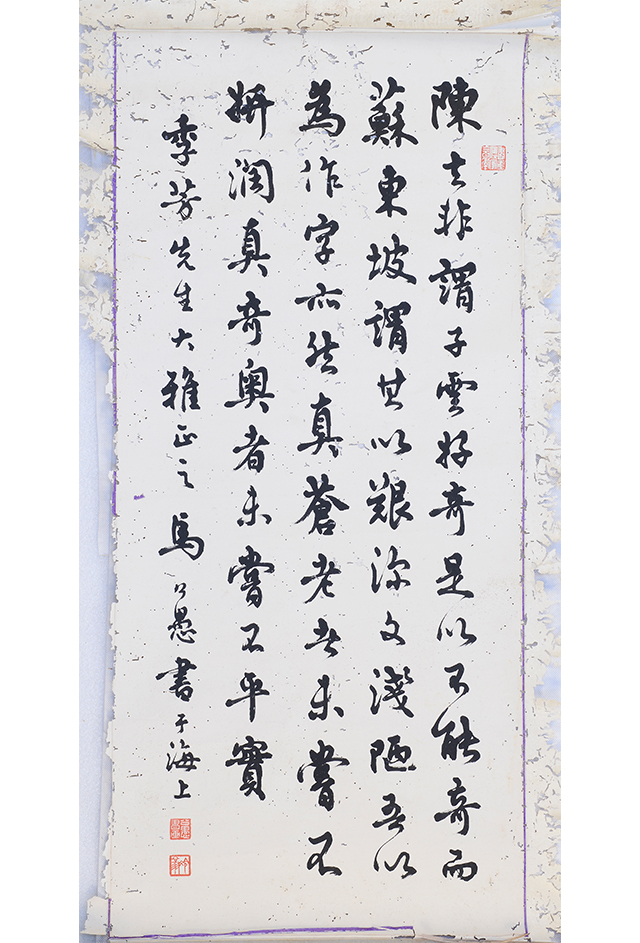 陳去非謂子雲好奇是以不能奇而
蘇東坡謂其以艱深文淺陋吾以
為作字亦然真蒼老者未嘗不
妍潤真奇奧者未嘗不平實
季芳先生大雅正之 馬公愚書于海上